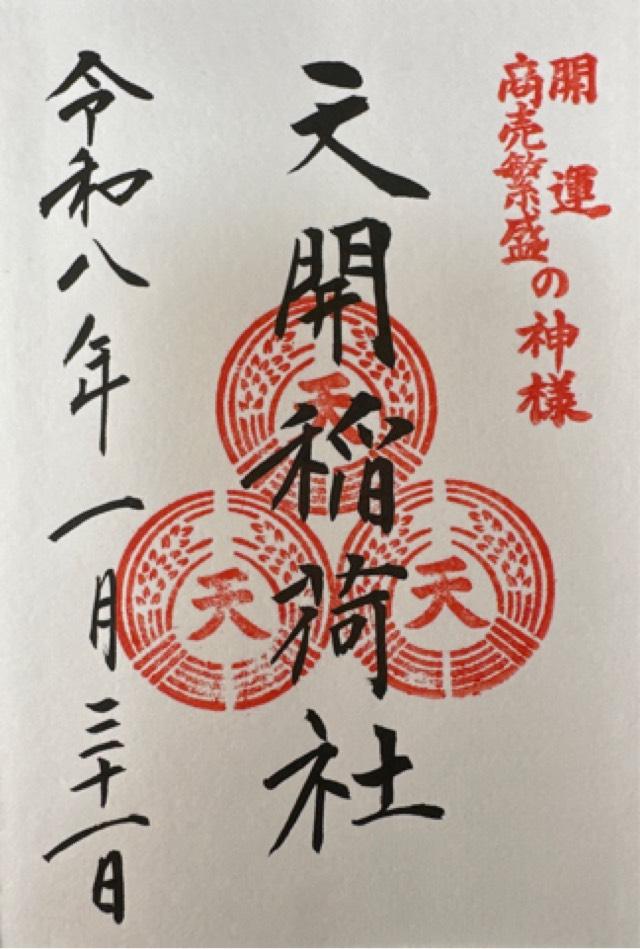 開運
商売繁盛の神様
天開稲荷社
天
天
天
令和八年一月三十一日